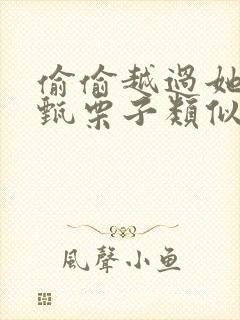 偷偷越過她
甄栗子類似
風聲小魚